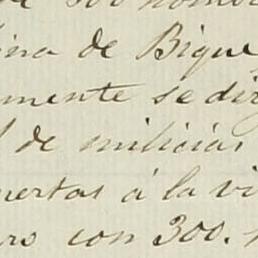 de 300 hombr
ina de Bique
mente se dir
l de milicias
uertas á la vi
ro con 300. h